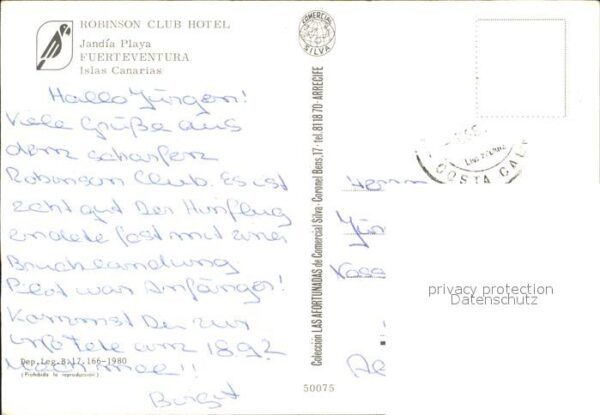 ROBINSON CLUB HOTEL
Jandía Playa
FUERTEVENTURA
Islas Canarias
Hallo Jürgen!
Viele Grüße aus
dem scharfen
Robinson Club. Es ist
echt gut. Der Hinflug
endete fast mit einer
Bruchlandung
Pilot war Anfänger!
Kommst Du zur
Fete am 18.9?
Mach mal!!
Birgit
Dep. Leg. B. 17.166-1980
(Prohibida la reproducción)
COMERCIAL SILVA
Colección LAS AFORTUNADAS de Comercial Silva - Coronel Bens, 17 - tel. 81 18 70 - ARRECIFE
50075
COSTA CAL
Herrn
Jür
privacy protection
Datenschutz